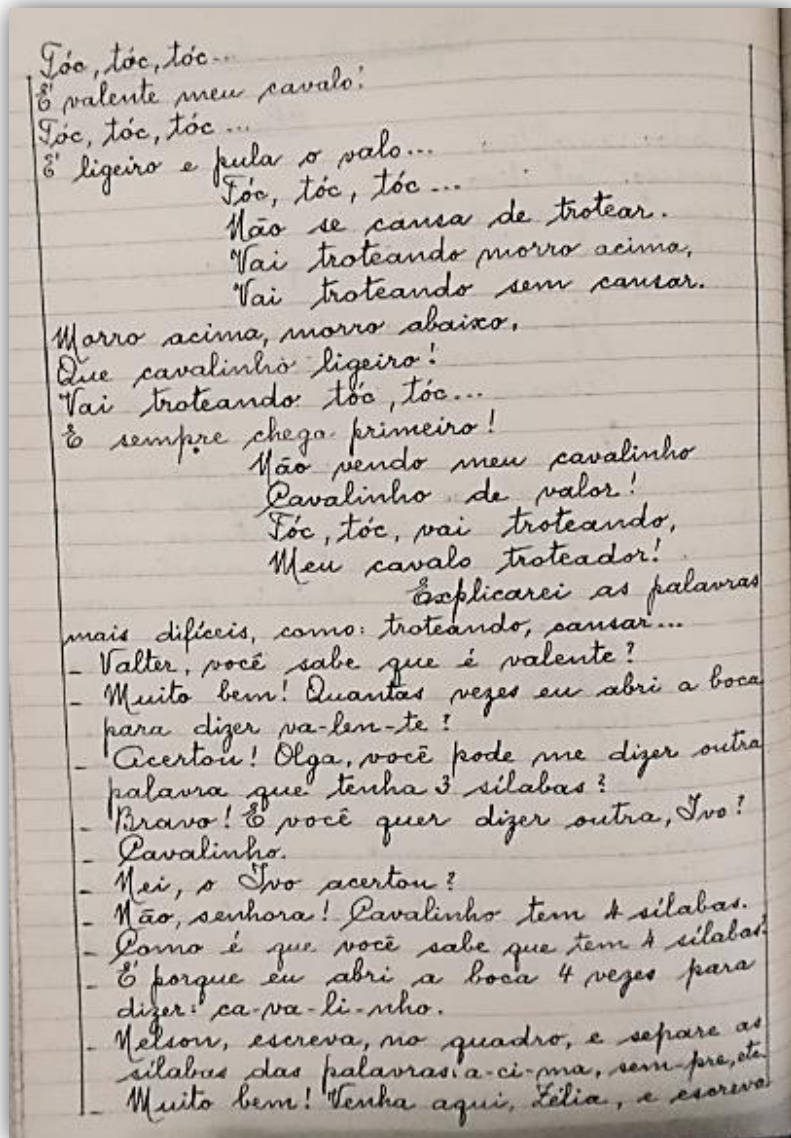 Tóc, tóc, tóc...
É valente meu cavalo!
Tóc, tóc, tóc...
É ligeiro e pula o valo...
Tóc, tóc, tóc...
Não se cansa de trotear.
Vai troteando morro acima,
Vai troteando sem cansar.
Morro acima, morro abaixo,
Que cavalinho ligeiro!
Vai troteando tóc, tóc...
E sempre chega primeiro!
Não vendo meu cavalinho
Cavalinho de valor!
Tóc, tóc, vai troteando,
Meu cavalo troteador!
Explicarei as palavras
mais difíceis, como: troteando, cansar...
- Valter, você sabe que é valente?
- Muito bem! Quantas vezes eu abri a boca
para dizer va-len-te?
- Acertou! Olga, você pode me dizer outra
palavra que tenha 3 sílabas?
- Bravo! E você quer dizer outra, Ivo?
- Cavalinho.
- Nei, o Ivo acertou?
- Não, senhora! Cavalinho tem 4 sílabas.
- Como é que você sabe que tem 4 sílabas?
- É porque eu abri a boca 4 vezes para
dizer: ca-va-li-nho.
- Nelson, escreva, no quadro, e separe as
sílabas das palavras: a-ci-ma, sem-pre, etc.
- Muito bem! Venha aqui, Zélia, e escreva